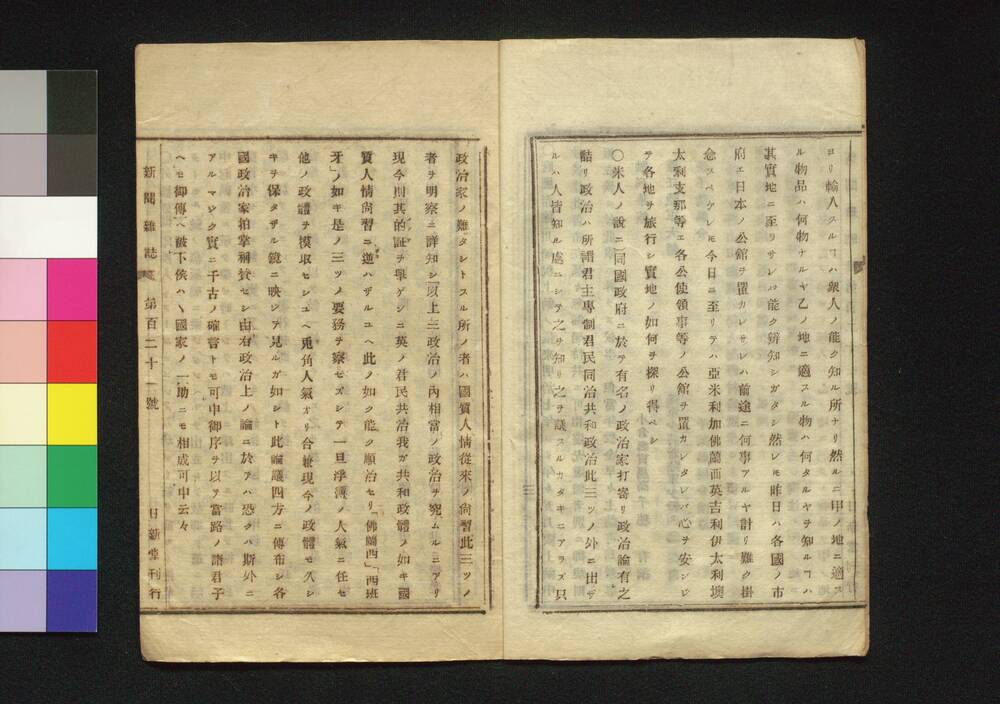 ヨリ輸入スルヿハ衆人ノ能ク知ル所ナリ然ルニ甲ノ地ニ適ス
ル物品ハ何物ナルヤ乙ノ地ニ適スル物ハ何タルヤヲ知ルヿハ
其實地ニ至リサレハ能ク辨知シガタシ然レ𪜈昨日ハ各國ノ市
府エ日本ノ公館ヲ置カレサレハ前途ニ何事アルヤ計リ難ク掛
念スベケレ𪜈今日ニ至リテハ亞米利加佛蘭西英吉利伊太利墺
太利支那等エ各公使領事等ノ公館ヲ置カレタレバ心ヲ安ンジ
テ各地ヲ旅行シ實地ノ如何ヲ探リ得ベシ
〇米人ノ說ニ同國政府ニ於テ有名ノ政治家打寄リ政治論有之
詰リ政治ハ所謂君主專制君民同治共和政治此三ツノ外ニ出デ
ルハ人皆知ル處ニシテ之ヲ知リ之ヲ議スルカタキニアラズ只
政治家ノ難タシトスル所ノ者ハ國質人情從來ノ尙習此三ツノ
者ヲ明察ニ詳知シ「以上三政治ノ內相當ノ政治ヲ究ムルニアリ
現今則其的証ヲ擧ゲンニ英ノ君民共治我ガ共和政體ノ如キ國
質人情尙習ニ逆ハザルユヘ此ノ如ク能ク順治セリ「佛蘭西」「西班
牙」ノ如キ是ノ三ツノ要務ヲ察セズシテ一旦浮薄ノ人氣ニ任セ
他ノ政體ヲ摸取セシユヘ兎角人氣オリ合兼現今ノ政體モ久シ
キヲ保タザル鏡ニ映ジテ見ルガ如シト此論議四方ニ傳布シ各
國政治家拍掌稱賛セシ由右政治上ノ論ニ於テハ恐クハ斯外ニ
アルマジク實ニ千古ノ確言トモ可申御序ヲ以テ當路ノ諸君子
ヘモ御傳ヘ被下候ハヽ國家ノ一助ニモ相成可申云々
新聞雜誌 第百二十一號 日新堂刊行